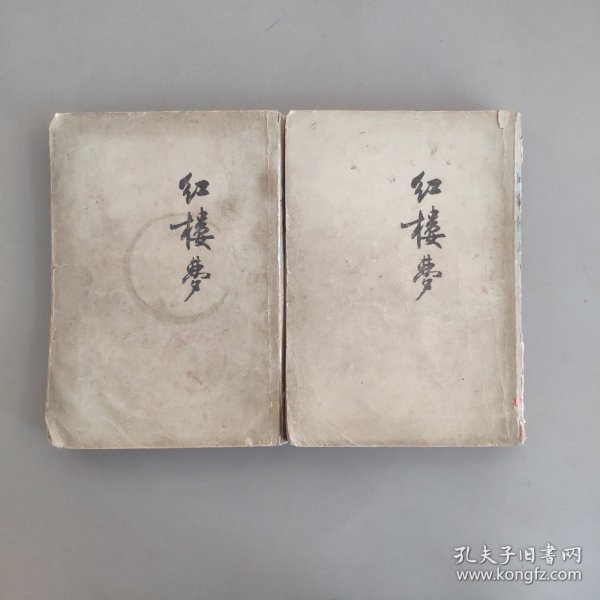 红楼梦
红楼梦
孔夫子旧书网
www.kongfz.com